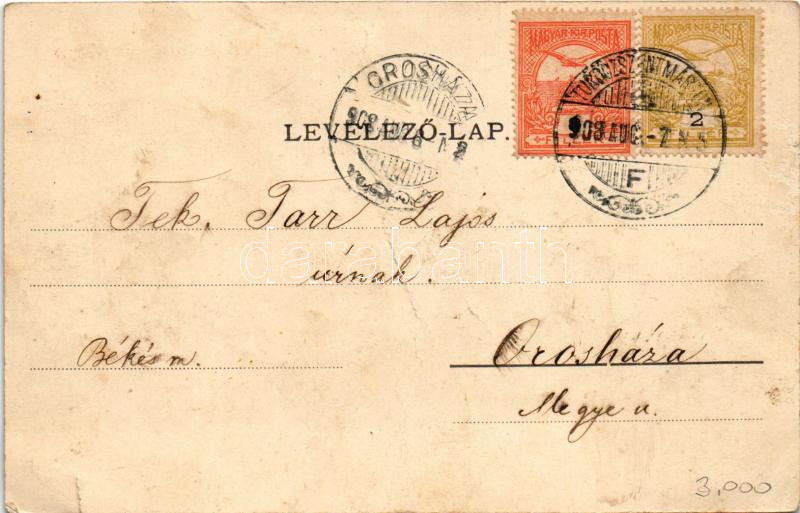 MAGYAR KIR. POSTA
MAGYAR KIR. POSTA
2
OROSHÁZA
908 AUG
TURÓCZSZENTMÁRTON
908 AUG. -7
F
LEVELEZŐ-LAP.
Tek. Tarr Lajos
úrnak.
Békés m.
Orosháza
Megye u.
darabanth
3.000